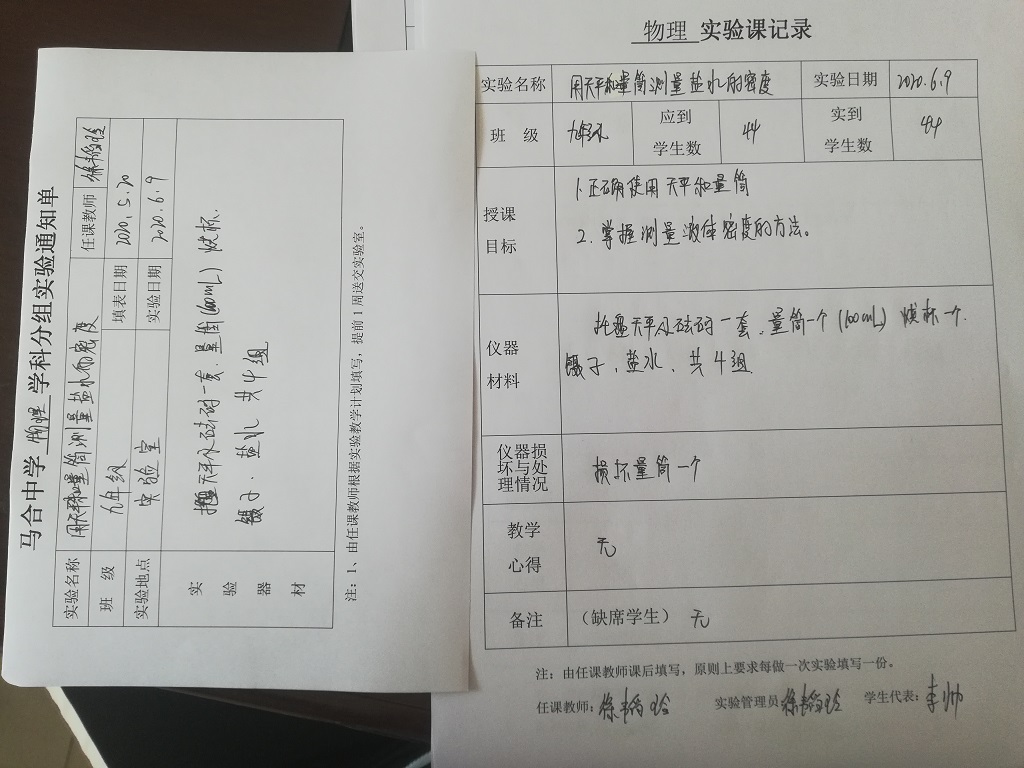 马合中学 物理 学科分组实验通知单
实验名称 用天平和量筒测量盐水的密度 任课教师
班 级 九年级 填表日期 2020.5.20
实验地点 实验室 实验日期 2020.6.9
实验器材
托盘天平及砝码一套、量筒(100mL) 烧杯.
镊子、盐水 共4组
注：1、由任课教师根据实验教学计划填写，提前1周送交实验室。
物理 实验课记录
实验名称 用天平和量筒测量盐水的密度 实验日期 2020.6.9
班 级 九年级 应到学生数 44 实到学生数 44
授课目标
1.正确使用天平和量筒
2.掌握测量液体密度的方法。
仪器材料
托盘天平及砝码一套、量筒一个(100mL) 烧杯一个.
镊子、盐水、共4组
仪器损坏与处理情况 损坏量筒一个
教学心得 无
备注 （缺席学生） 无
注：由任课教师课后填写，原则上要求每做一次实验填写一份。
任课教师： 实验管理员： 学生代表：李帅